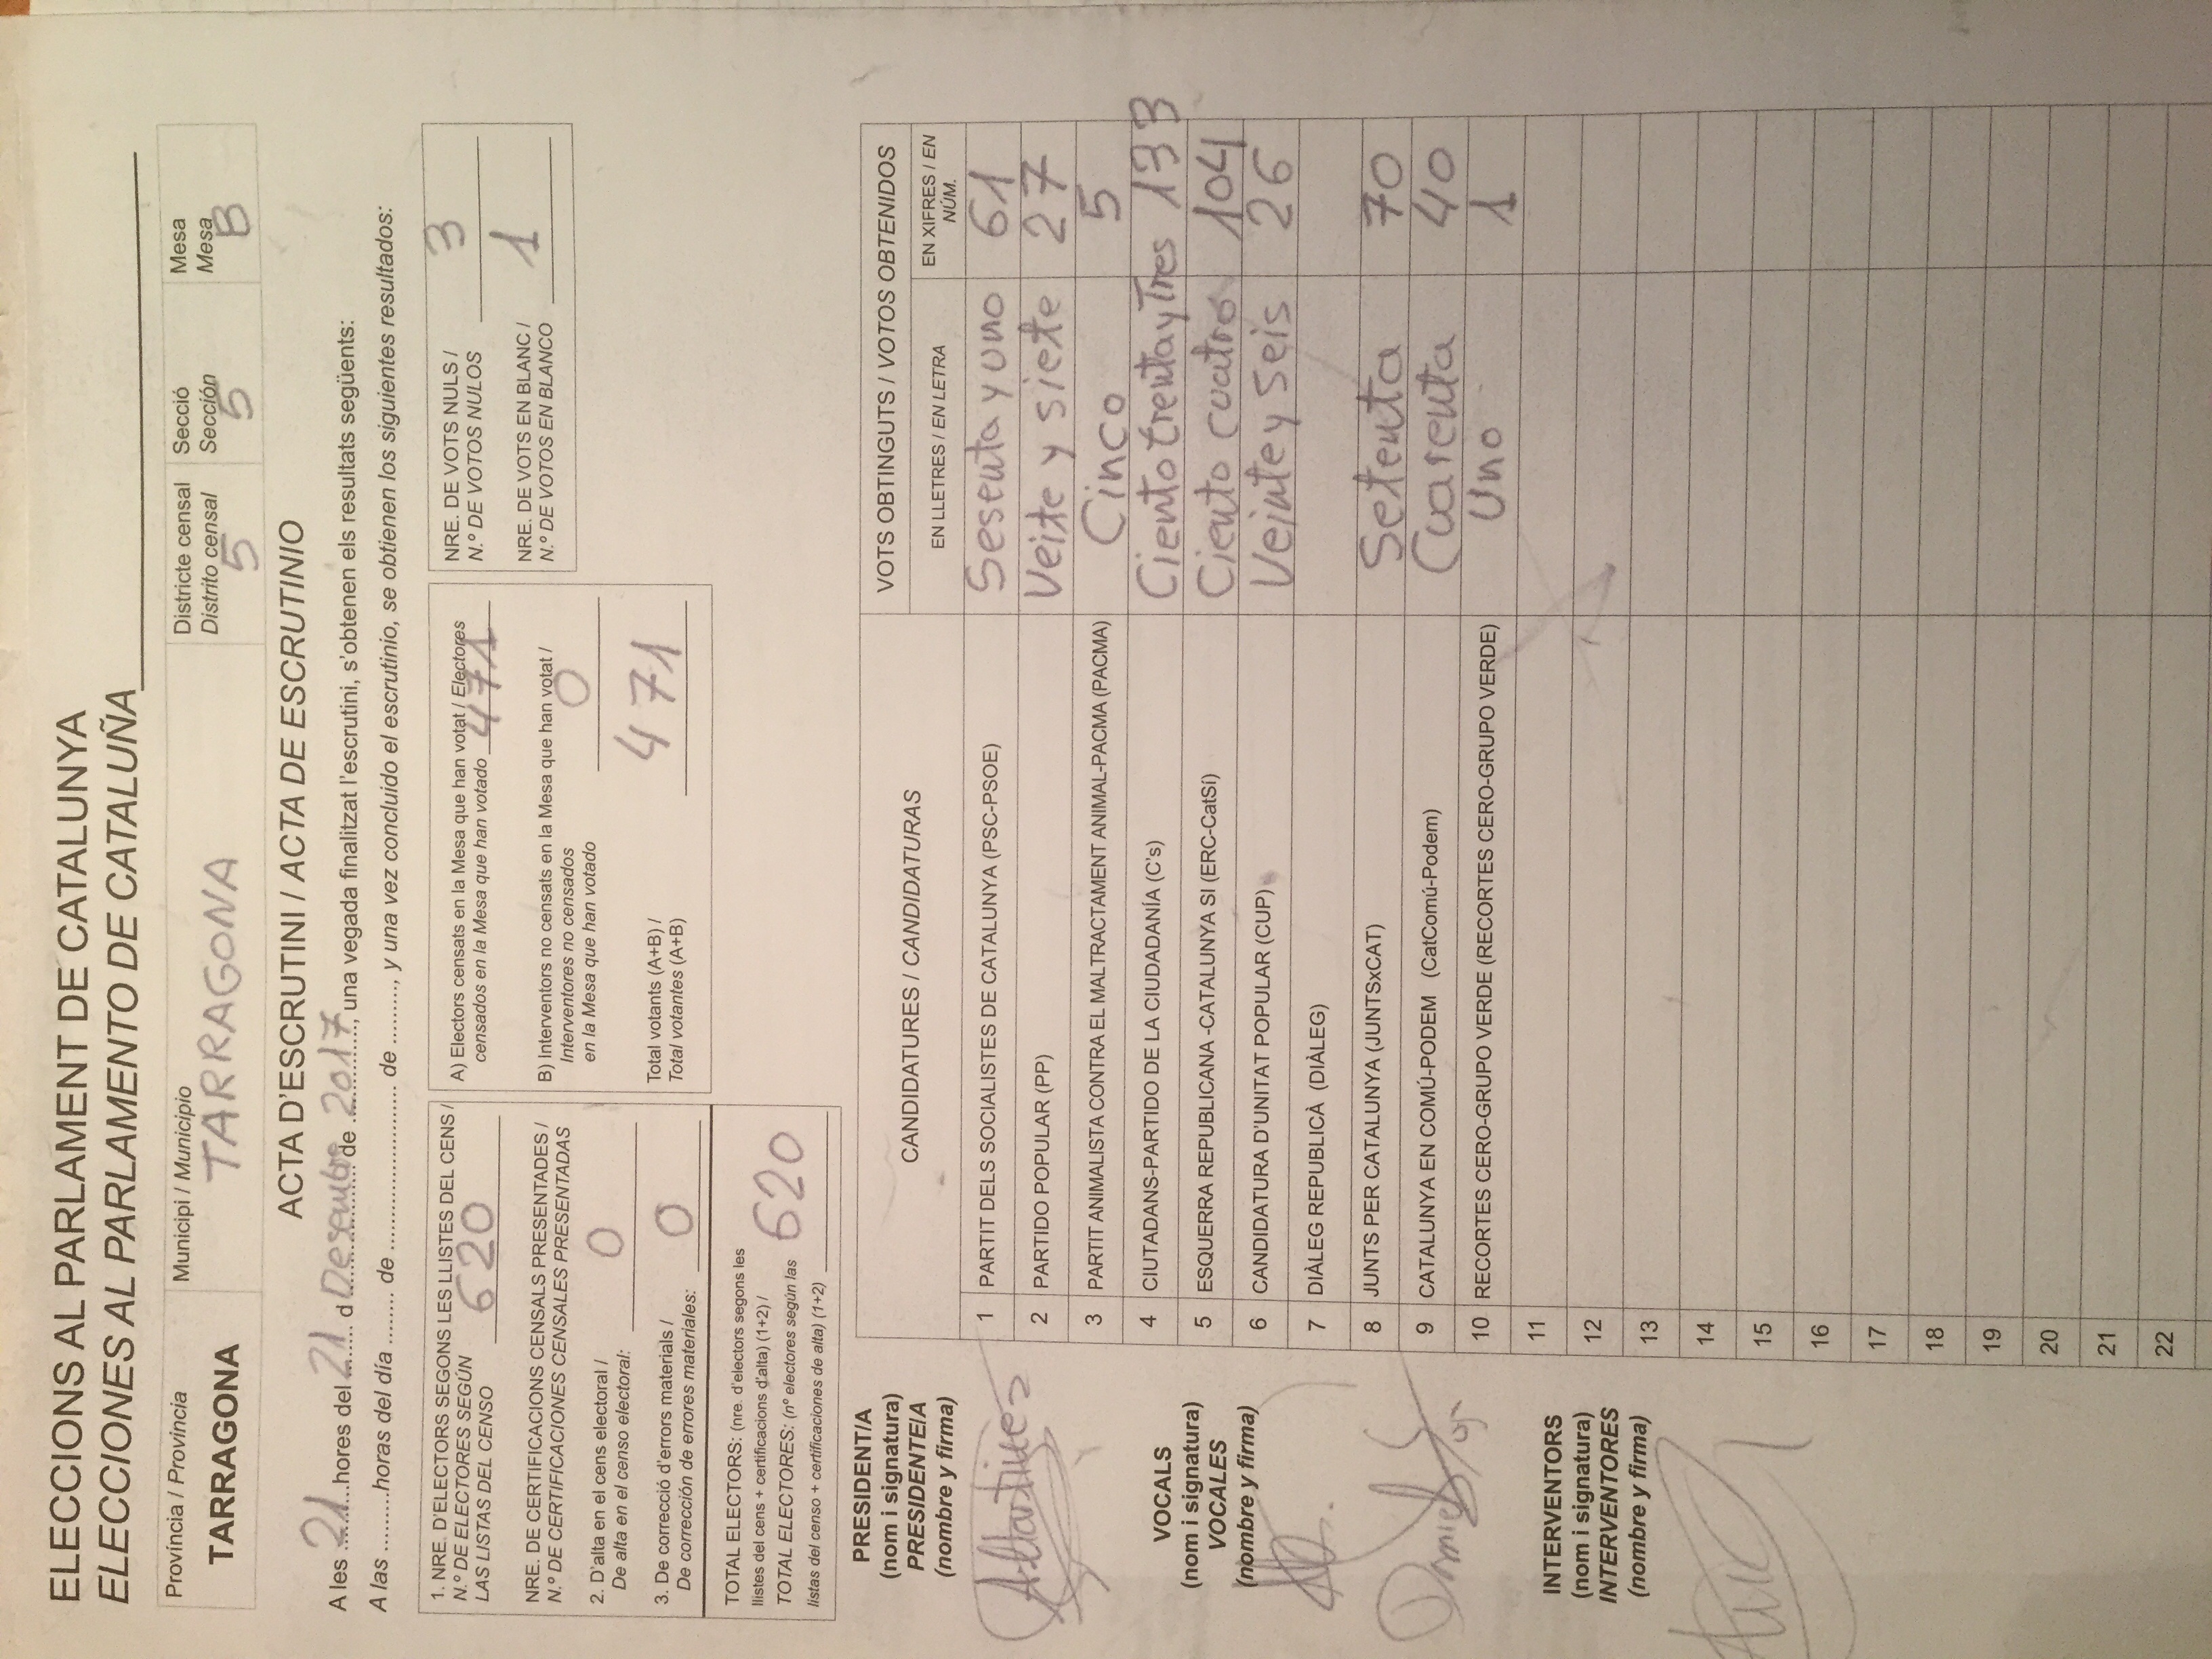 ELECCIONS AL PARLAMENT DE CATALUNYA
ELECCIONES AL PARLAMENTO DE CATALUÑA
Província / Provincia
TARRAGONA
Municipi / Municipio
TARRAGONA
Districte censal
Distrito censal
5
Secció
Sección
5
Mesa
Mesa
B
ACTA D'ESCRUTINI / ACTA DE ESCRUTINIO
A les 21 hores del 21 d Desembre de 2017, una vegada finalitzat l'escrutini, s'obtenen els resultats següents:
A las .........horas del día ........ de ......................... de ........., y una vez concluido el escrutinio, se obtienen los siguientes resultados:
1. NRE. D'ELECTORS SEGONS LES LLISTES DEL CENS /
N.º DE ELECTORES SEGÚN
LAS LISTAS DEL CENSO 620
NRE. DE CERTIFICACIONS CENSALS PRESENTADES /
N.º DE CERTIFICACIONES CENSALES PRESENTADAS
2. D'alta en el cens electoral /
De alta en el censo electoral: 0
3. De correcció d'errors materials /
De corrección de errores materiales: 0
TOTAL ELECTORS: (nre. d'electors segons les
llistes del cens + certificacions d'alta) (1+2) /
TOTAL ELECTORES: (nº electores según las 620
listas del censo + certificaciones de alta) (1+2)
A) Electors censats en la Mesa que han votat / Electores
censados en la Mesa que han votado 471
B) Interventors no censats en la Mesa que han votat /
Interventores no censados
en la Mesa que han votado 0
Total votants (A+B) /
Total votantes (A+B) 471
NRE. DE VOTS NULS /
N.º DE VOTOS NULOS 3
NRE. DE VOTS EN BLANC /
N.º DE VOTOS EN BLANCO 1
PRESIDENT/A
(nom i signatura)
PRESIDENTE/A
(nombre y firma)
VOCALS
(nom i signatura)
VOCALES
(nombre y firma)
Daniel
INTERVENTORS
(nom i signatura)
INTERVENTORES
(nombre y firma)
CANDIDATURES / CANDIDATURAS
VOTS OBTINGUTS / VOTOS OBTENIDOS
EN LLETRES / EN LETRA
EN XIFRES / EN
NÚM.
1 PARTIT DELS SOCIALISTES DE CATALUNYA (PSC-PSOE) Sesenta y uno 61
2 PARTIDO POPULAR (PP) Veite y siete 27
3 PARTIT ANIMALISTA CONTRA EL MALTRACTAMENT ANIMAL-PACMA (PACMA) Cinco 5
4 CIUTADANS-PARTIDO DE LA CIUDADANÍA (C's) Ciento trenta y Tres 133
5 ESQUERRA REPUBLICANA -CATALUNYA SI (ERC-CatSí) Ciento cuatro 104
6 CANDIDATURA D'UNITAT POPULAR (CUP) Veinte y Seis 26
7 DIÀLEG REPUBLICÀ (DIÀLEG)
8 JUNTS PER CATALUNYA (JUNTSxCAT) Setenta 70
9 CATALUNYA EN COMÚ-PODEM (CatComú-Podem) Cuarenta 40
10 RECORTES CERO-GRUPO VERDE (RECORTES CERO-GRUPO VERDE) Uno 1
11
12
13
14
15
16
17
18
19
20
21
22